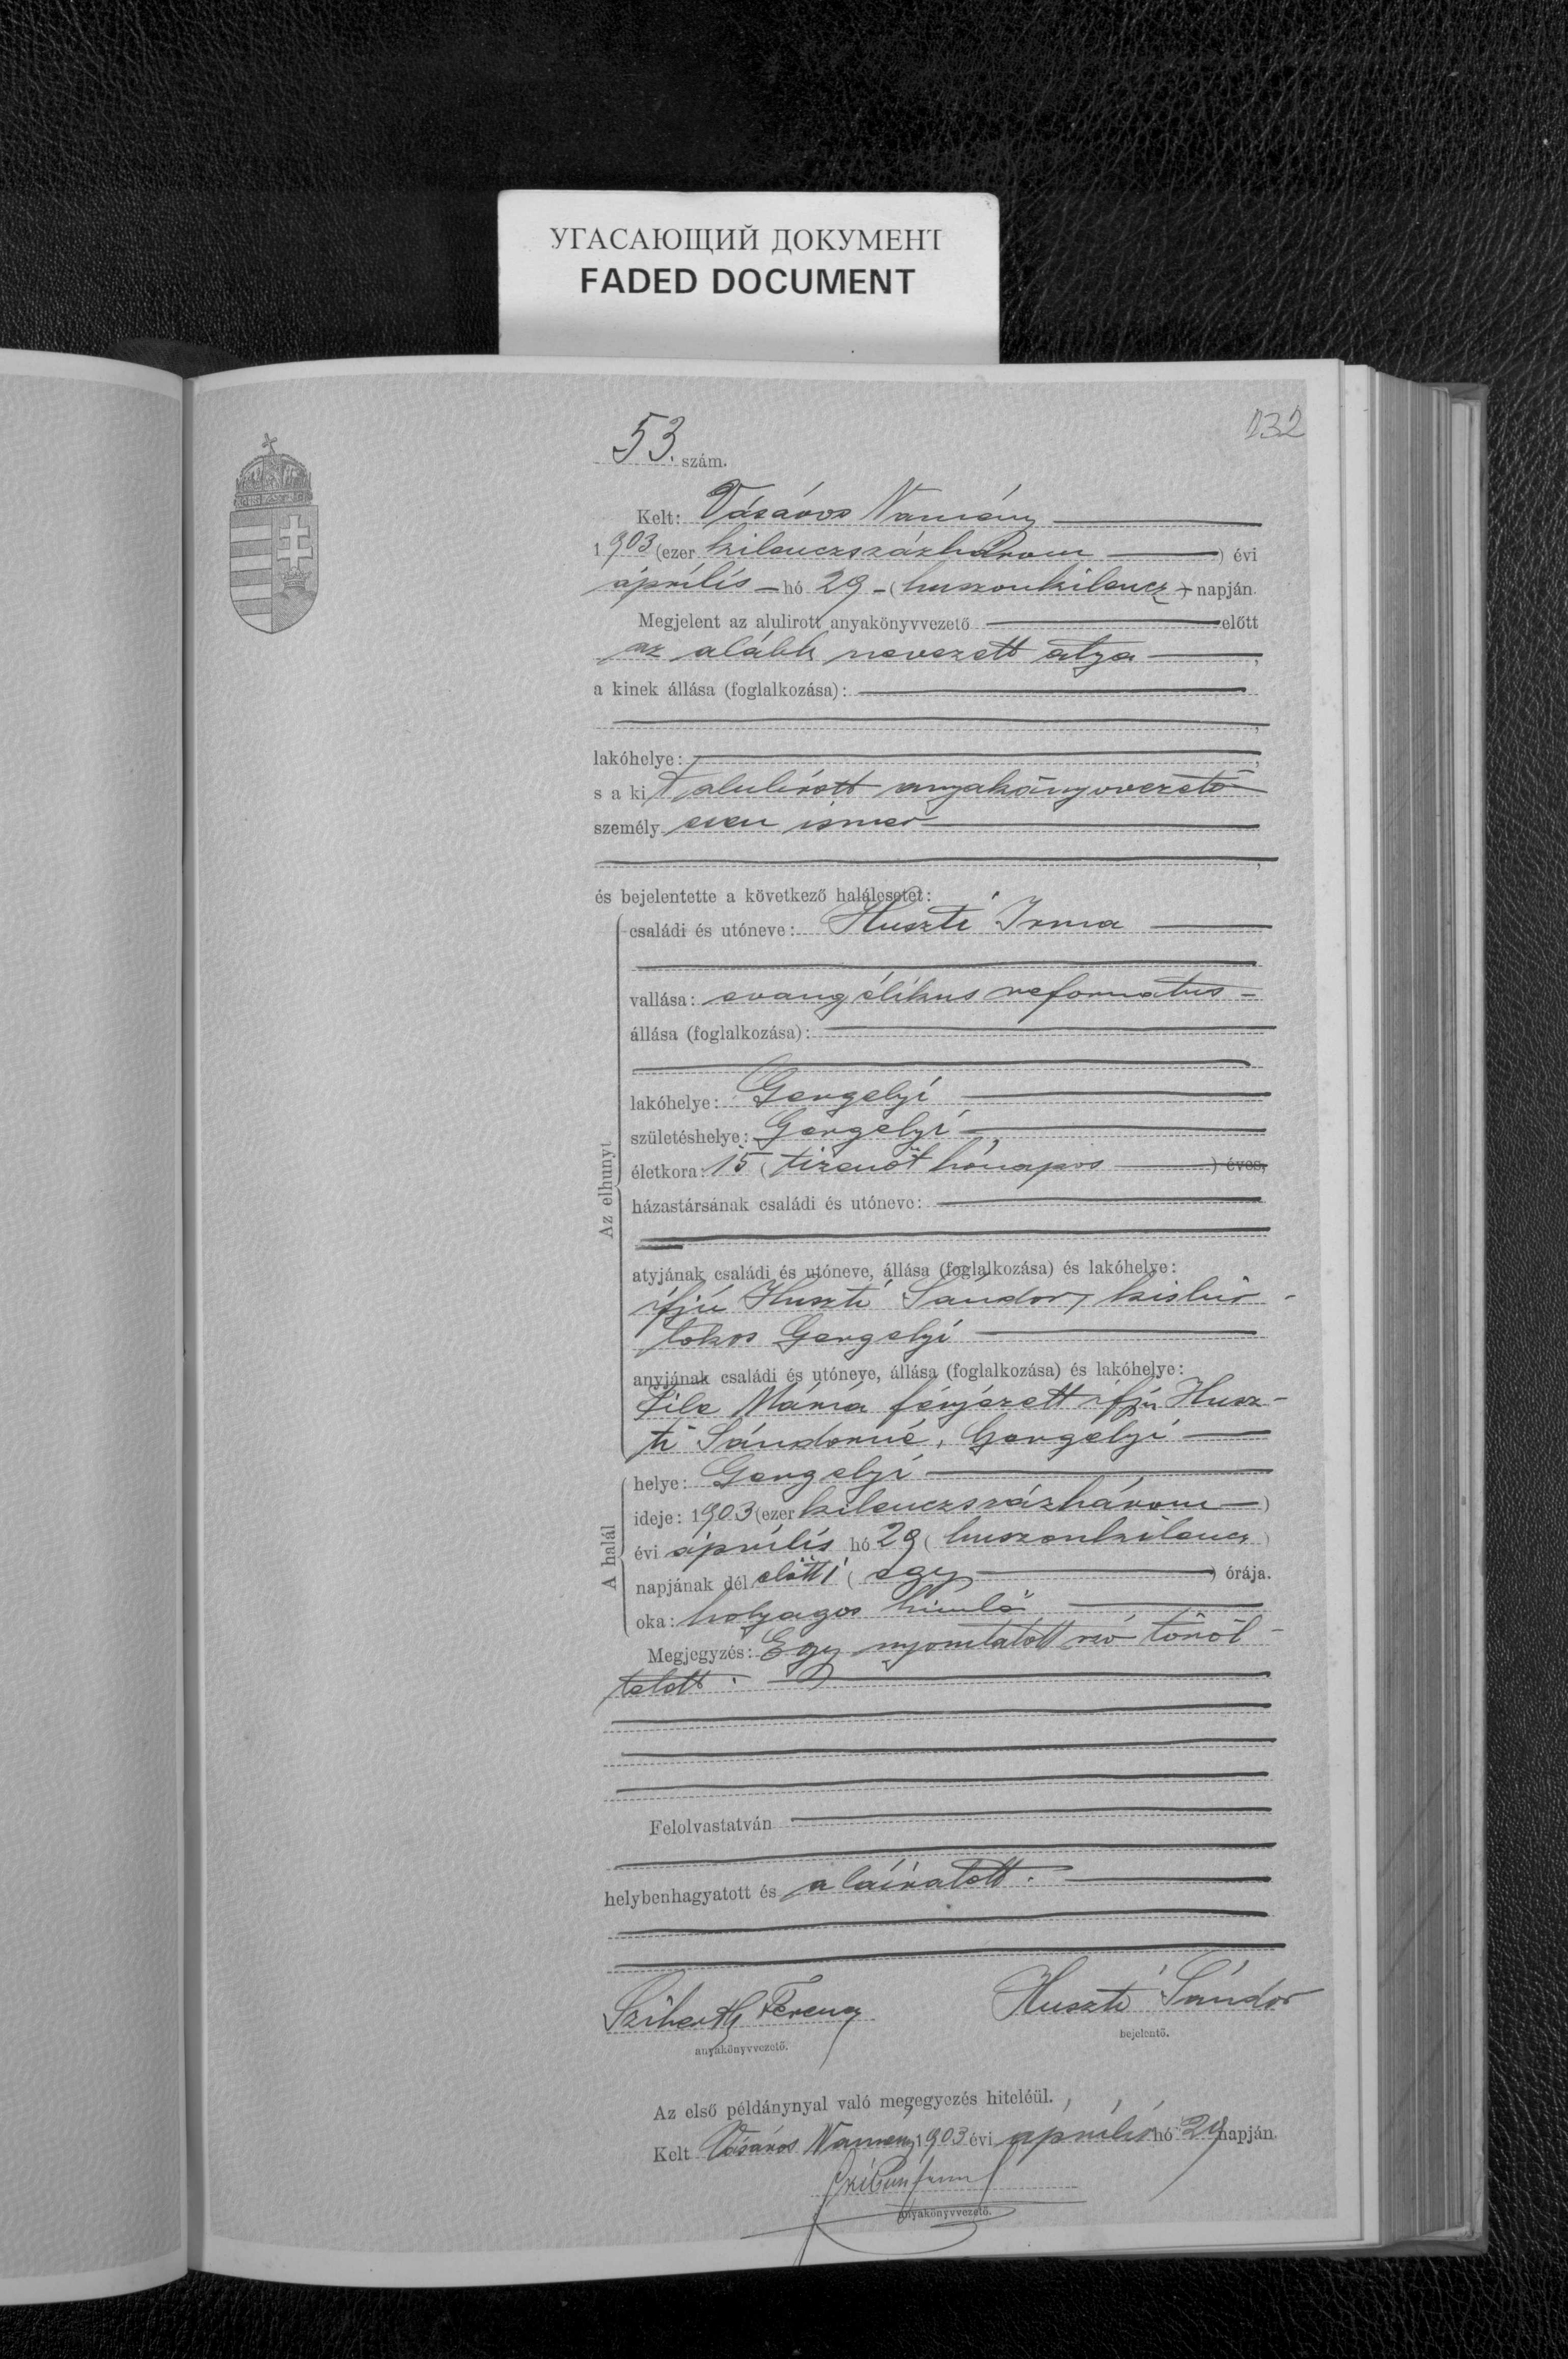 УГАСАЮЩИЙ ДОКУМЕНТ
FADED DOCUMENT
132
53. szám.
Kelt: Vásáros Namény
1903 (ezer kilenczszázhárom) évi
április hó 29 (huszonkilencz) napján.
Megjelent az alulirott anyakönyvvezető előtt
az alább nevezett atya,
a kinek állása (foglalkozása):
lakóhelye:
s a kit alulírott anyakönyvvezető
személyesen ismer
és bejelentette a következő halálesetet:
Az elhunyt
családi és utóneve: Huszti Irma
vallása: evangélikus reformatus
állása (foglalkozása):
lakóhelye: Gergelyi
születéshelye: Gergelyi
életkora: 15 (tizenöt hónapos) éves,
házastársának családi és utóneve:
atyjának családi és utóneve, állása (foglalkozása) és lakóhelye:
ifjú Huszti Sándor, kisbir-
tokos Gergelyi
anyjának családi és utóneve, állása (foglalkozása) és lakóhelye:
Mária férjezett ifjú Husz-
ti Sándorné, Gergelyi
A halál
helye: Gergelyi
ideje: 1903 (ezer kilenczszázhárom)
évi április hó 29 (huszonkilencz)
napjának délelőtti (egy) órája.
oka: holyagos himlő
Megjegyzés: Egy nyomtatott szó töröl-
tetett.
Felolvastatván
helybenhagyatott és aláíratott.
Ferencz
anyakönyvvezető.
Huszti Sándor
bejelentő.
Az első példánynyal való megegyezés hiteléül.
Kelt Vásáros Namény 1903 évi április hó 29 napján.
anyakönyvvezető.